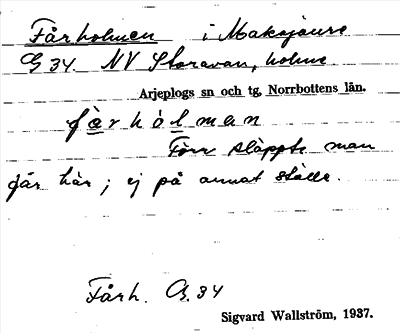 Fårholmen i Maksjaure
G 34. NV Storavan, holme
Arjeplogs sn och tg, Norrbottens län.
fàrhòlman
Förr släppts man
får här; ej på annat ställe.
Fårh. G. 34
Sigvard Wallström, 1937.